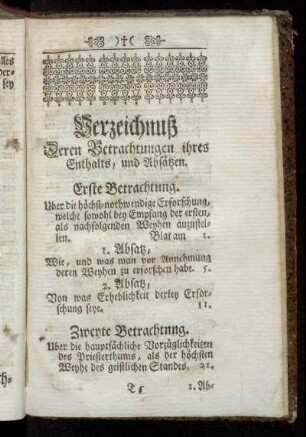 )†(
Verzeichnuß
Deren Betrachtungen ihres
Enthalts, und Absätzen.
Erste Betrachtung.
Uber die höchst-nothwendige Erforschung,
welche sowohl bey Empfang der ersten,
als nachfolgenden Weyhen anzustel-
len. Blat am 1.
1. Absatz,
Wie, und was man vor Annehmung
deren Weyhen zu erforschen habe. 5.
2. Absatz,
Von was Erheblichkeit derley Erfor-
schung seye. 11.
Zweyte Betrachtnng.
Uber die hauptsächliche Vorzüglichkeiten
des Priesterthums, als der höchsten
Weyhe des geistlichen Standes. 21.
1. Ab-